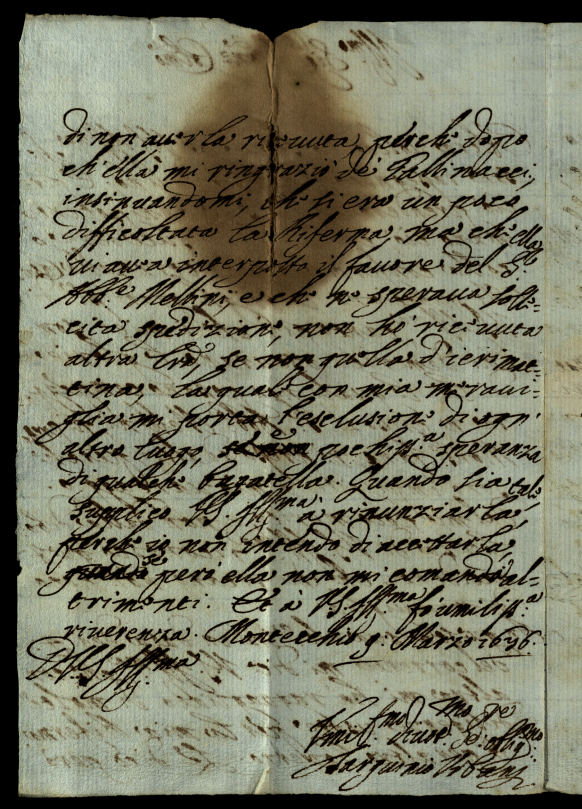 di non averla ricevuta, perche dopo
ch'ella mi ringraziò de' Gallinacci,
insinuandomi, che si era un poco
difficoltata la Riferma, ma che ella
vi avea interposto il favore del S.r
Abb.e Mellini, e che ne sperava solle=
cita spedizione, non hò ricevuta
altra lrã, se non quella d'ierimat=
tina, la quale con mia meravi=
glia mi porta l'esclusione di ogn'
altro luogo, e pochiss.a speranza
di qualche bagatella. Quando sia tale
supplico VS. Ill.ma a rinunziarla,
perche io non intendo di accettarla,
se però ella non mi comanda al=
trimenti. Et à VS. Ill.ma fo umiliss.a
riverenza. Montecchio 9. Marzo 1696.
D. VS. Ill.ma